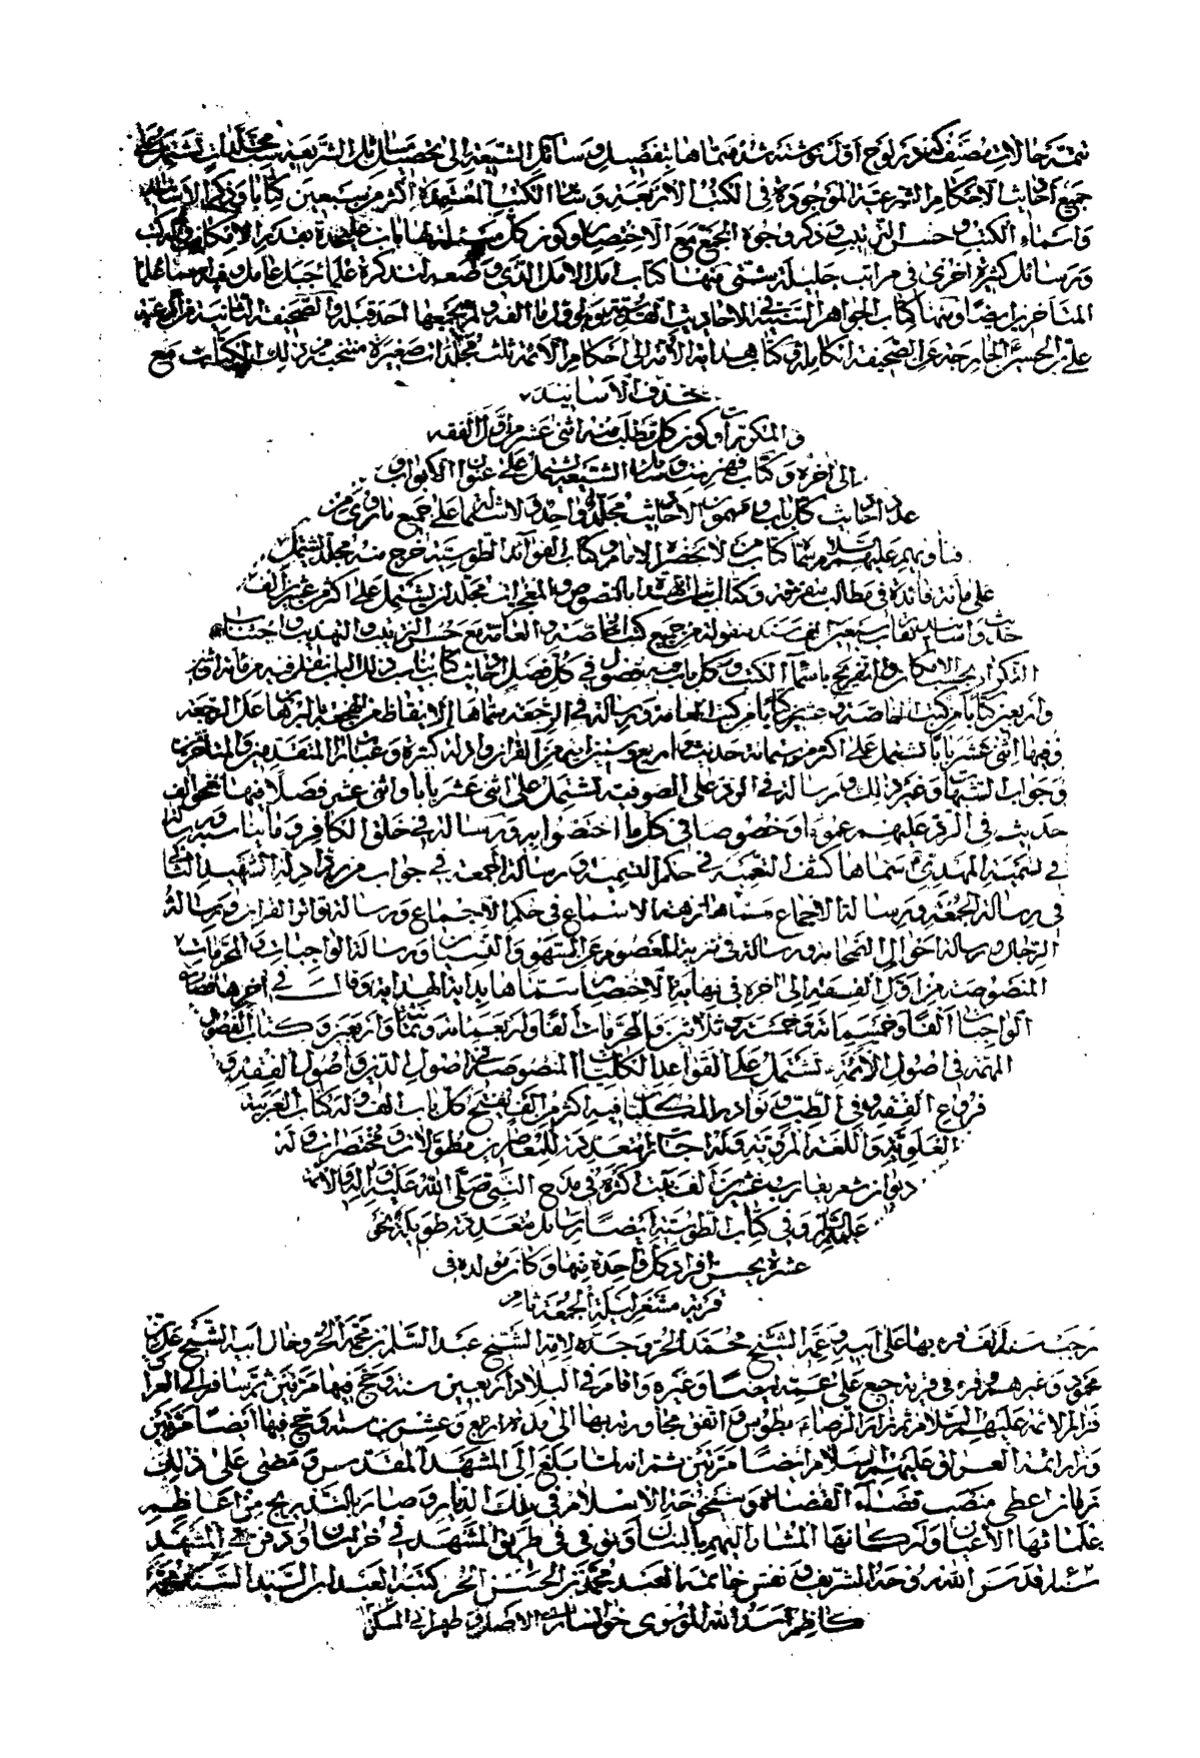 تتمة حالات مصنف كه در لوح اول نوشته شد فسماها بتفصيل وسائل الشيعة الى تحصيل مسائل الشريعة ست مجلدات تشتمل على
جميع أحاديث الاحكام الشرعية الموجودة في الكتب الاربعة وسائر الكتب المعتمدة اكثر من سبعين كتابا وذكر الاسانيد
واسماء الكتب وحسن الترتيب وذكر وجوه الجمع مع الاختصار وكون كل مسئلة لها باب على حدة بقدر الامكان
ورسائل كثيرة اخرى في مراتب جليلة شتى منها كتاب امل الامل الذي وضعه لتذكرة علماء جبل عامل
المتأخرين ايضا ومنها كتاب الجواهر السنية في الاحاديث القدسية وهو اول ما الفه ولم يجمعها احد قبله والصحيفة الثانية من ادعية
علي بن الحسين الخارجة عن الصحيفة الكاملة وكتاب هداية الأمة الى احكام الائمة ثلث مجلدات صغيرة منتخبة من ذلك الكتاب مع
حذف الاسانيد
والمكررات وكون كل مطلب منه اثنى عشر من اول الفقه
الى آخره وكتاب فهرست وسائل الشيعة يشتمل على عنوان الابواب و
عدد احاديث كل باب ومضمون الاحاديث مجلد واحد ولاشتماله على جميع ما روى من
فتاويهم عليهم السلام سماه كتاب من لا يحضره الامام وكتاب الفوائد الطوسية خرج منه مجلد يشتمل
على مائة فائدة في مطالب متفرقة وكتاب اثبات الهداة بالنصوص والمعجزات مجلدان يشتمل على اكثر من عشرين الف
حديث واسانيد تقارب سبعين الف سند منقولة من جميع كتب الخاصة والعامة مع حسن الترتيب والتهذيب واجتناب
التكرار بحسب الامكان والتصريح باسماء الكتب وكل باب فيه فصول في كل فصل احاديث كتاب يناسب ذلك الباب نقل فيه من مائة واثنين
واربعين كتابا من كتب الخاصة و عشرين كتابا من كتب العامة ورسالة في الرجعة سماها الايقاظ من الهجعة بالبرهان على الرجعة
وفيها اثنى عشر بابا تشتمل على اكثر من ستمائة حديث واربع وستين آية من القرآن وادلة كثيرة وعبارات المتقدمين والمتأخرين
وجواب الشبهات وغير ذلك ورسالة في الرد على الصوفية تشتمل على اثنى عشر بابا واثنى عشر فصلا فيها نحو الف
حديث في الرد عليهم عموما وخصوصا في كل ما اختصوا به ورسالة في خلق الكافر وما يناسبه ورسالة
في تسمية المهدي سماها كشف التعمية في حكم التسمية ورسالة الجمعة في جواب من رد ادلة الشهيد الثاني
في رسالة الجمعة ورسالة الاجماع سماها نزهة الاسماع في حكم الاجماع ورسالة تواتر القرآن ورسالة
الرجال ورسالة احوال الصحابة ورسالة في تنزيه المعصوم عن السهو والنسيان ورسالة الواجبات والمحرمات
المنصوصة من اول الفقه الى آخره في نهاية الاختصار سماها بداية الهداية وقال في آخرها فصارت
الواجبات الفا وخمسمائة وخمسة وثلاثين والمحرمات الفا واربعمائة وثمانية واربعين وكتاب الفصول
المهمة في اصول الائمة تشتمل على القواعد الكليات المنصوصة في اصول الدين واصول الفقه و
فروع الفقه وفي الطب ونوادر الكليات فيه اكثر من الف باب يفتح كل باب الف وله كتاب العربية
العلوية واللغة المروية وله اجازات متعددة للمعاصرين مطولات ومختصرات وله
ديوان شعر يقارب عشرين الف بيت اكثره في مدح النبي صلى الله عليه واله والائمة
عليهم السلام وفي كتاب الطوسية ايضا رسائل متعددة طويلة نحو
عشرة يحسن افراد كل واحدة منها وكان مولده في
قرية مشغر ليلة الجمعة ثامن
رجب سنة الف قرء بها على ابيه وعمه الشيخ محمد الحر وجده لامه الشيخ عبد السلام بن محمد الحر وخال ابيه الشيخ علي بن
محمود وغيرهم وقرء في قرية جبع على عمه ايضا وغيره واقام في البلاد اربعين سنة وحج فيها مرتين ثم سافر الى العراق
فزار الائمة عليهم السلام ثم زار الرضاء بطوس واتفق مجاورته بها الى مدة اربع وعشرين سنة وحج فيها ايضا مرتين
وزار ائمة العراق عليهم السلام ايضا مرتين ثم انه لما بلغ الى المشهد المقدس ومضى على ذلك
زمان اعطى منصب قضاء القضاة وشيخوخة الاسلام في تلك الديار وصار بالتدريج من اعاظم
علمائها الأعيان واركانها المشار اليهم بالبنان وتوفي في طريق المشهد في خراسان ودفن في المشهد
قدس الله روحه الشريف نقش خاتمه العبد محمد بن الحسن الحر كتبه العبد ابن السيد
كاظم اسد الله الموسوي خوانساري الاصل وطهراني المسكن